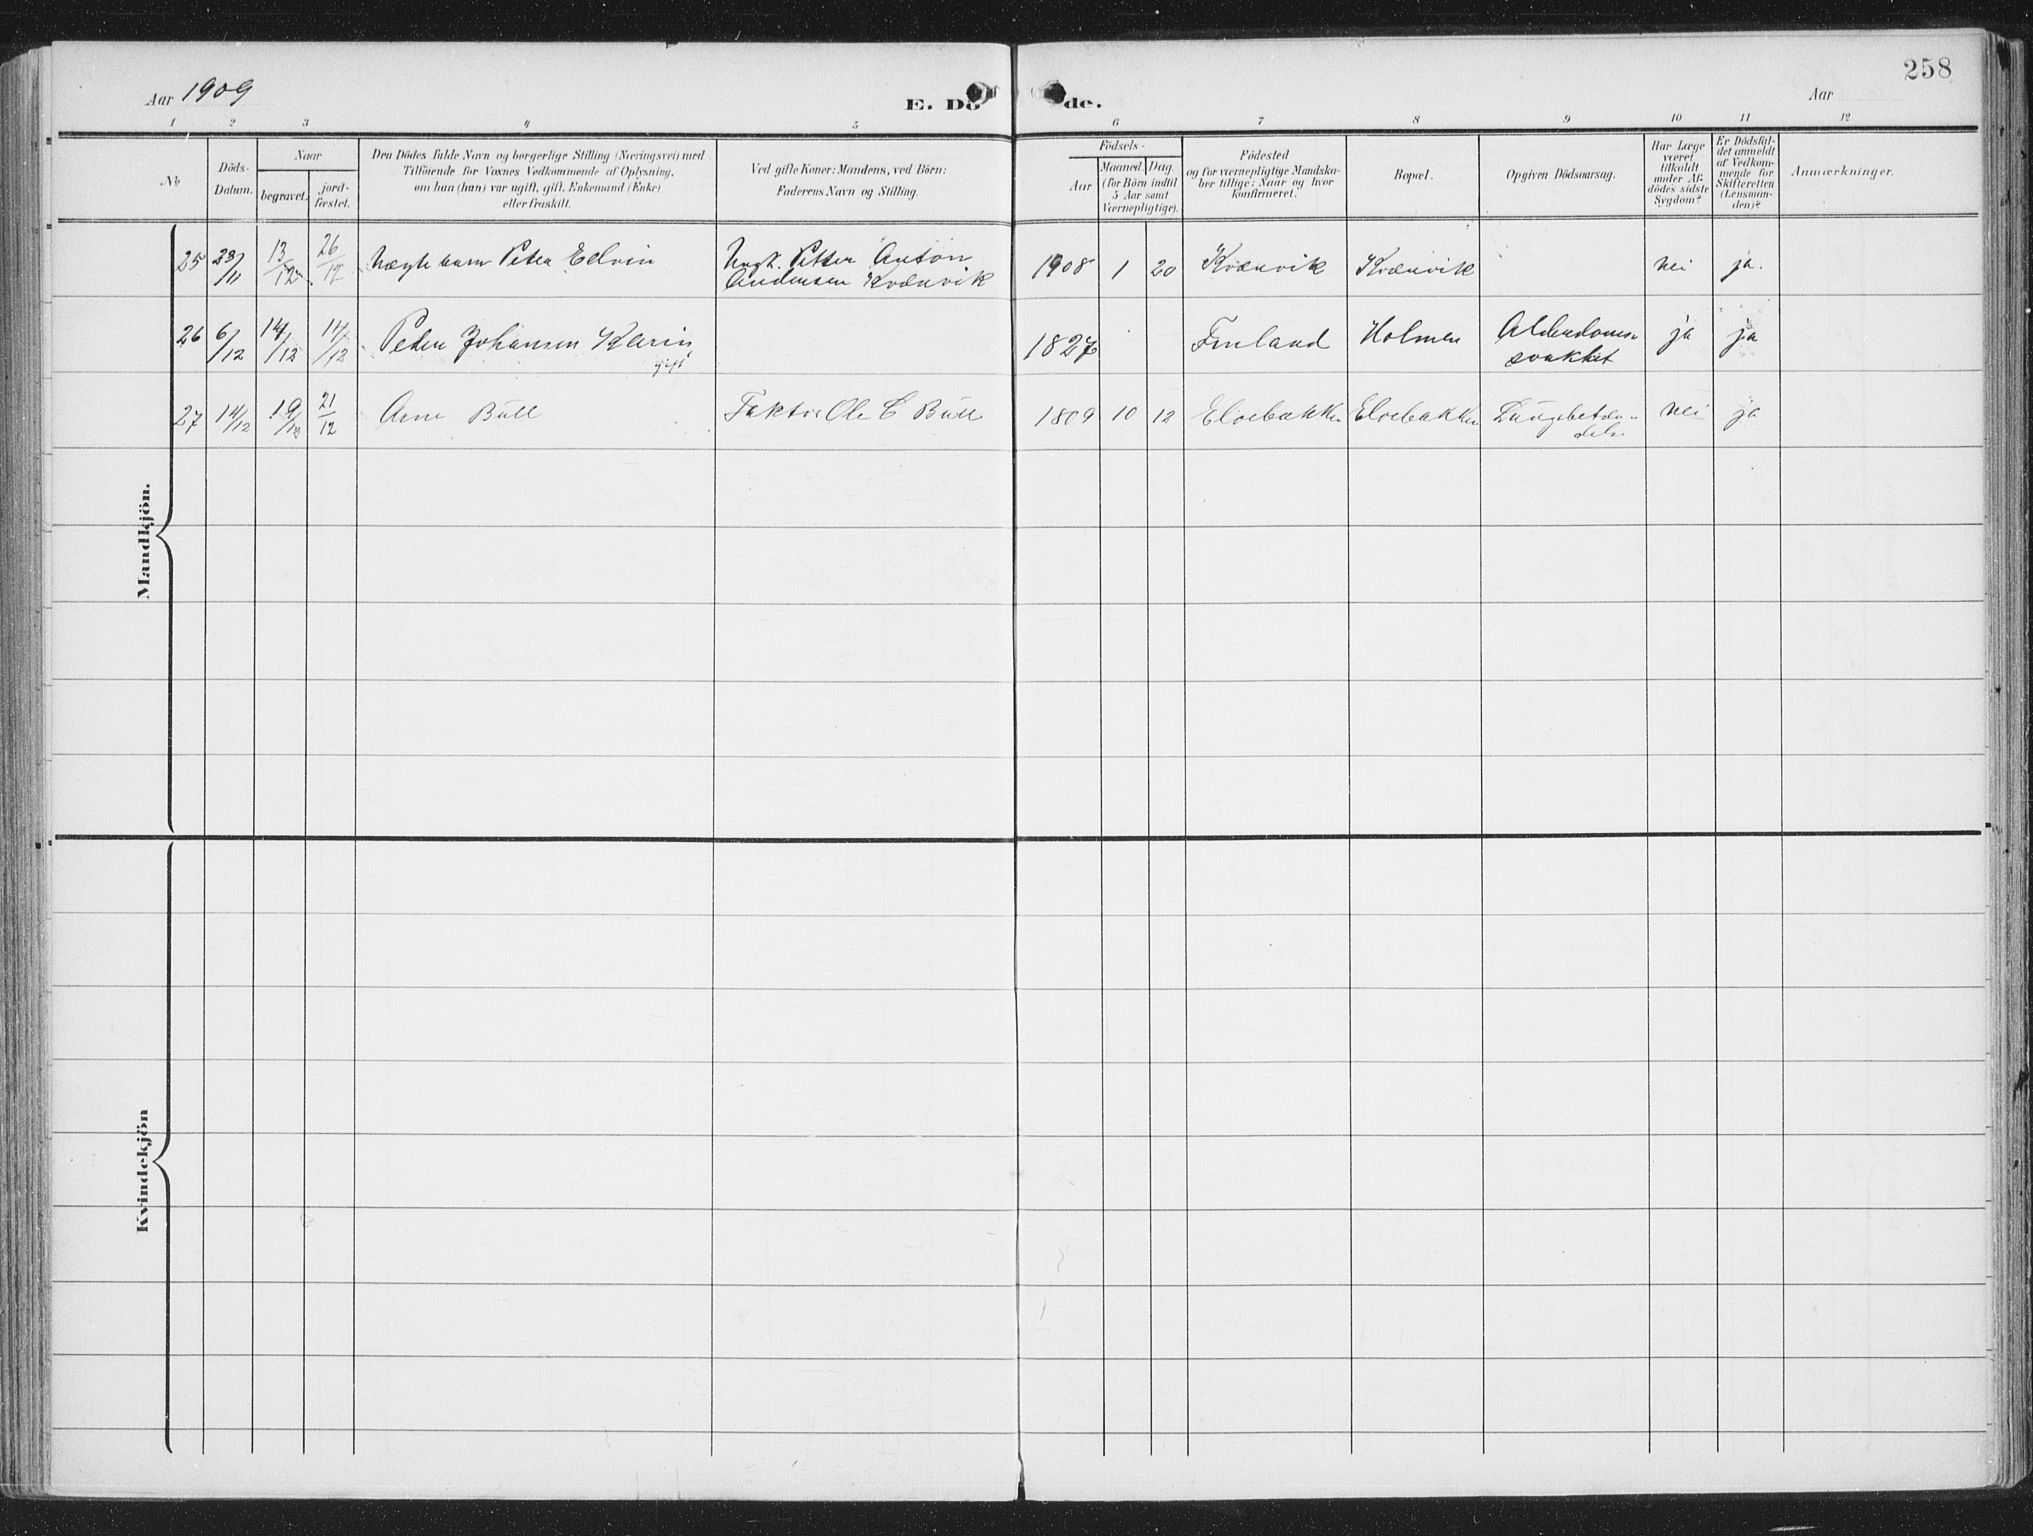 258
Aar 1909
E. Dö de.
Aar
1 2 3 4 5 6 7 8 9 10 11 12
No
Döds-Datum.
Naar
begravet.
jord-fæstet.
Den Dödes fulde Navn og borgerlige Stilling (Næringsvei) med
Tilföiende for Voxnes Vedkommende af Oplysning,
om han (hun) var ugift, gift, Enkemand (Enke)
eller fraskilt.
Ved gifte Koner: Mandens, ved Börn:
Faderens Navn og Stilling.
Födsels-
Aar
Maaned. Dag.
(for Börn indtil
5 Aar samt
Værnepligtige).
Födested
og for værnepligtige Mandska-
ber tillige: Naar og hvor
konfirmeret.
Bopæl.
Opgiven Dödsaarsag.
Har Læge
været
tilkaldt
under Af-
dödes sidste
Sygdom?
Er Dödsfal-
det anmeldt
af Vedkom-
mende for
Skifteretten
(Lensman-
den)?
Anmærkninger.
Mandkjön.
25 23/11 13/12 26/12 Peter Edvin Petter Anton 1908 1 20 Kvænvik Kvænvik nei ja.
Andersen Kvænvik
26 6/12 14/12 14/12 Peder Johansen Karin 1827 Finland Holmen Alderdoms- ja ja
gift svakhet
27 14/12 19/12 21/12 Arne Bull Faktor Ole C Bull 1809 10 12 Elvebakken Elvebakken Lungebetæn- nei ja
delse
Kvindekjön